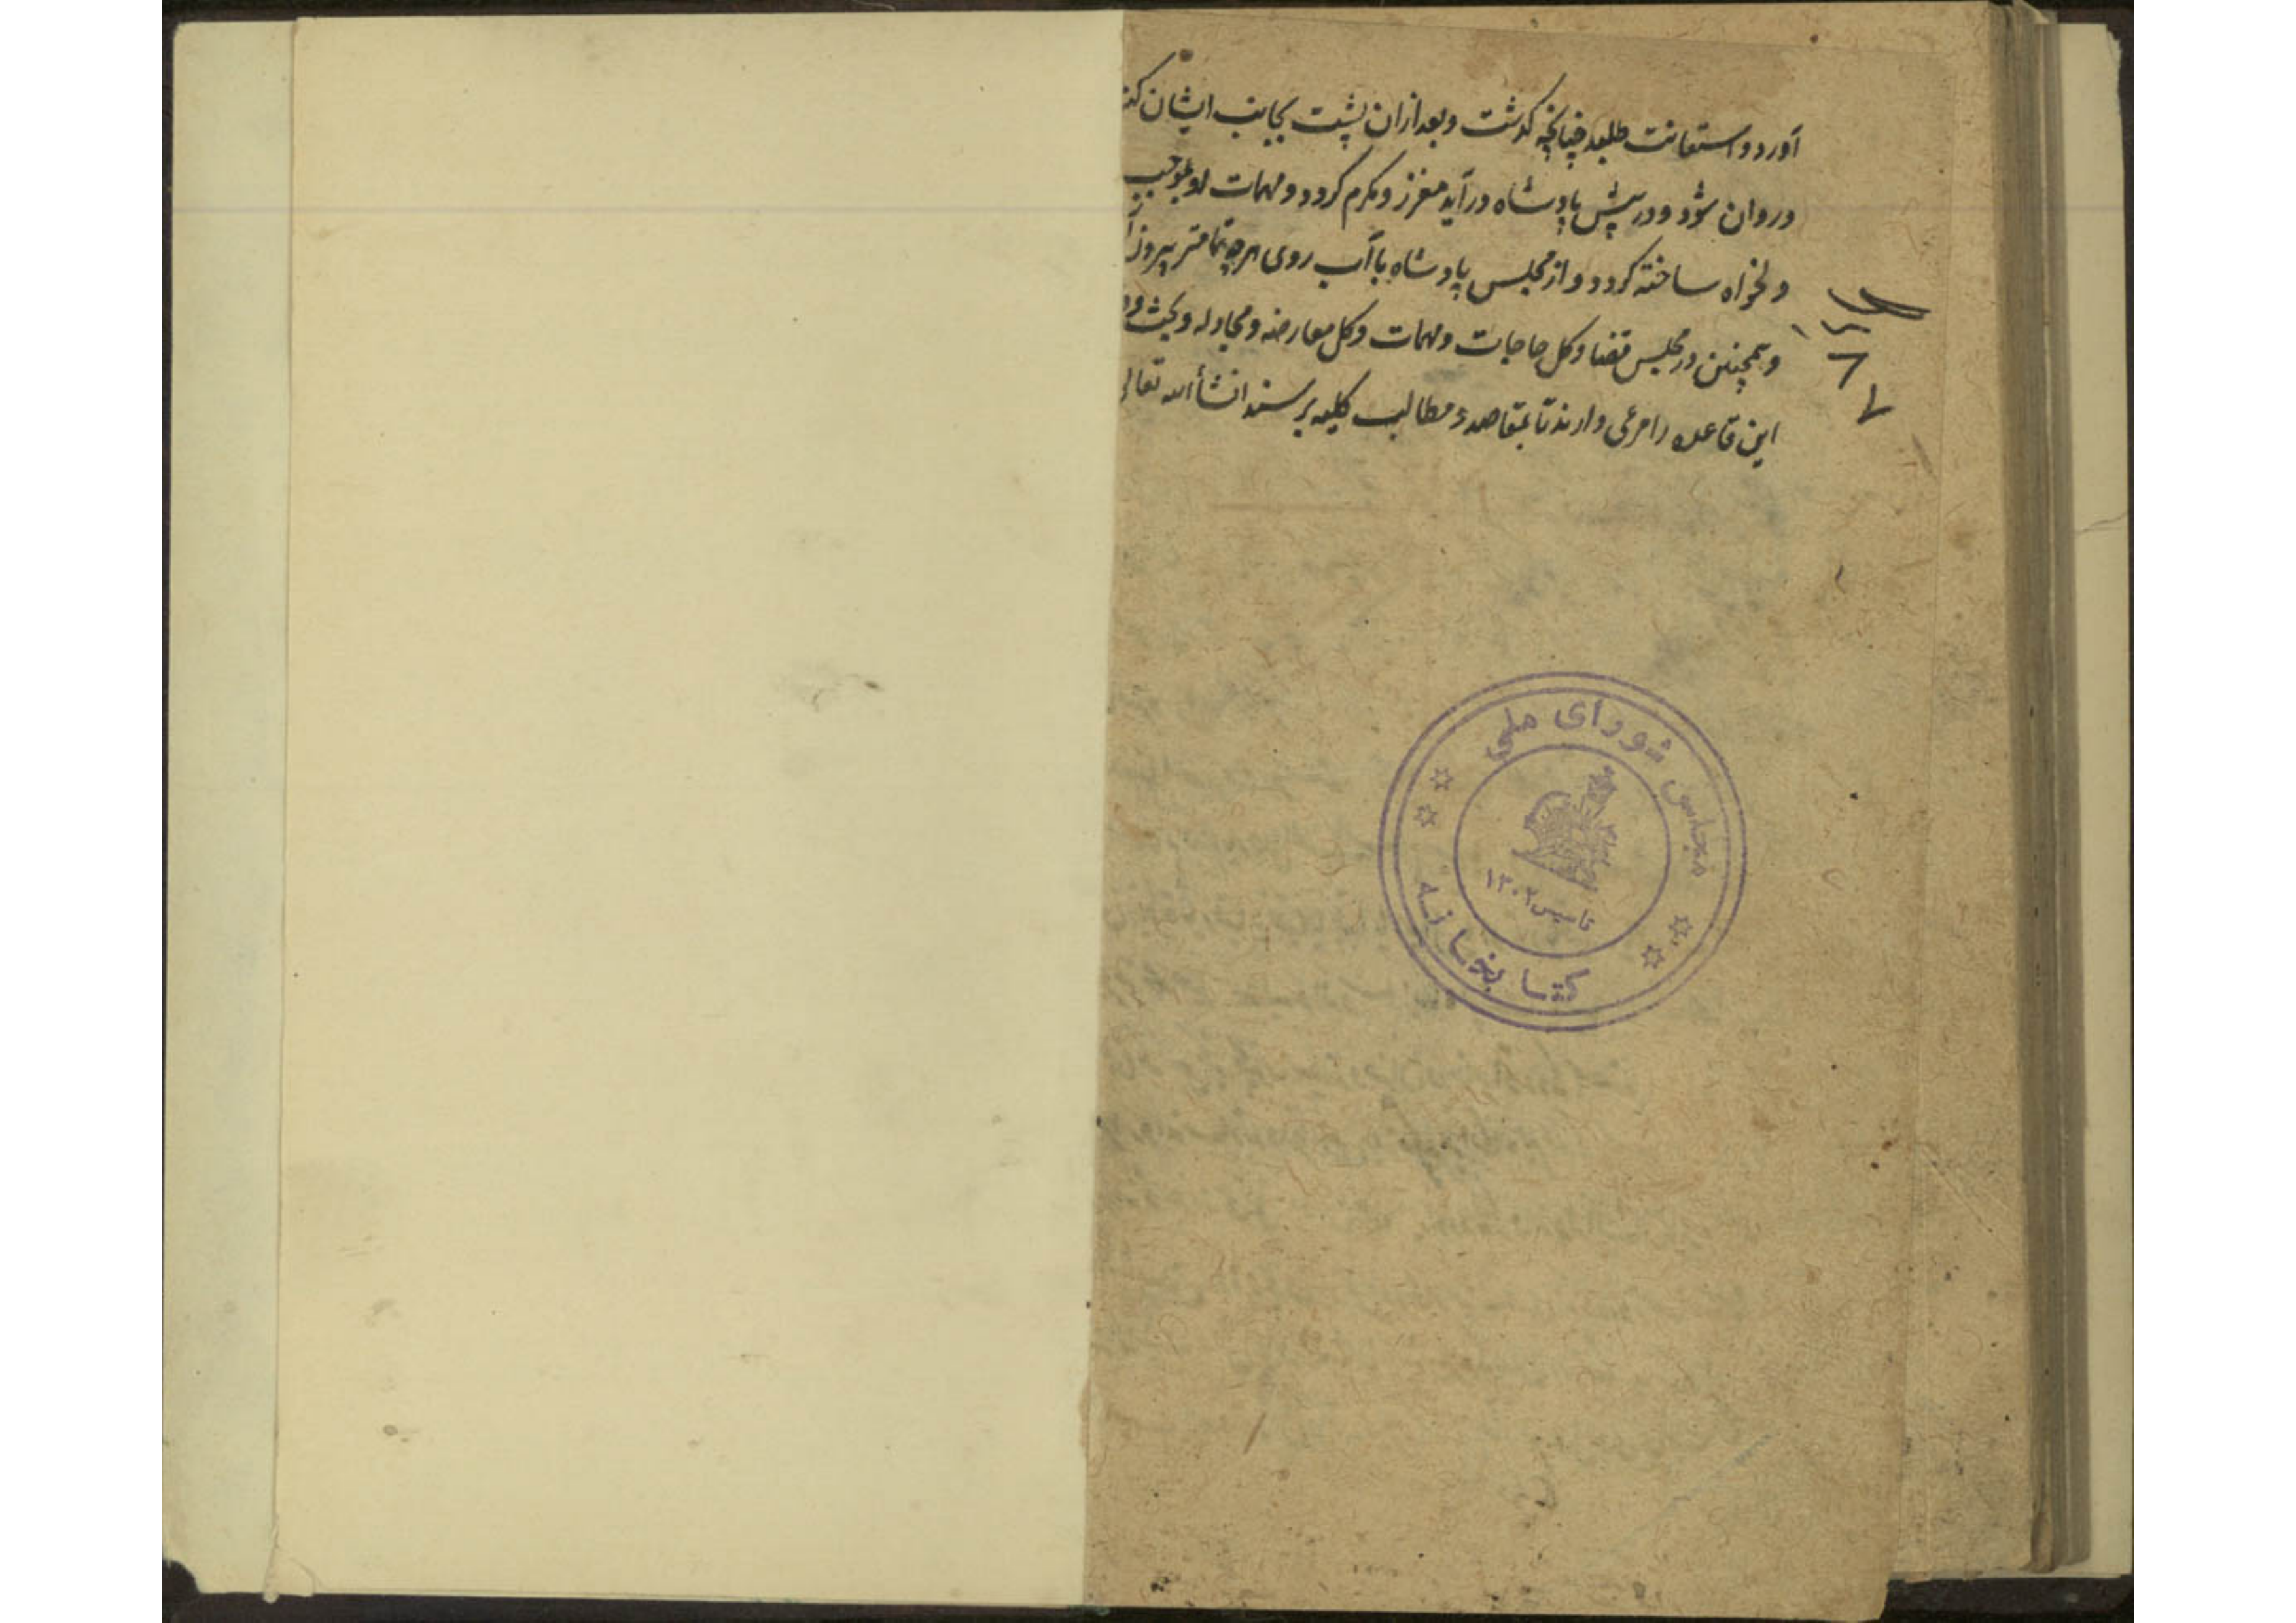 آورد و استعانت طلبد چنانچه گذشت و بعد ازان پشت بجانب ایشان
و روان شود و در پیش پادشاه درآید معزز و مکرم گردد و مهمات او
دلخواه ساخته گردد و از مجلس پادشاه با آب روی هرچه تمامتر
و همچنین در مجلس قضا و کل حاجات و مهمات و کل معارضه و مجادله و بحث
این قاعده را مرعی دارند تا بمقاصد و مطالب کلیه برسند انشاء الله تعالی
مجلس شورای ملی
تاسیس ۱۳۰۲
کتابخانه